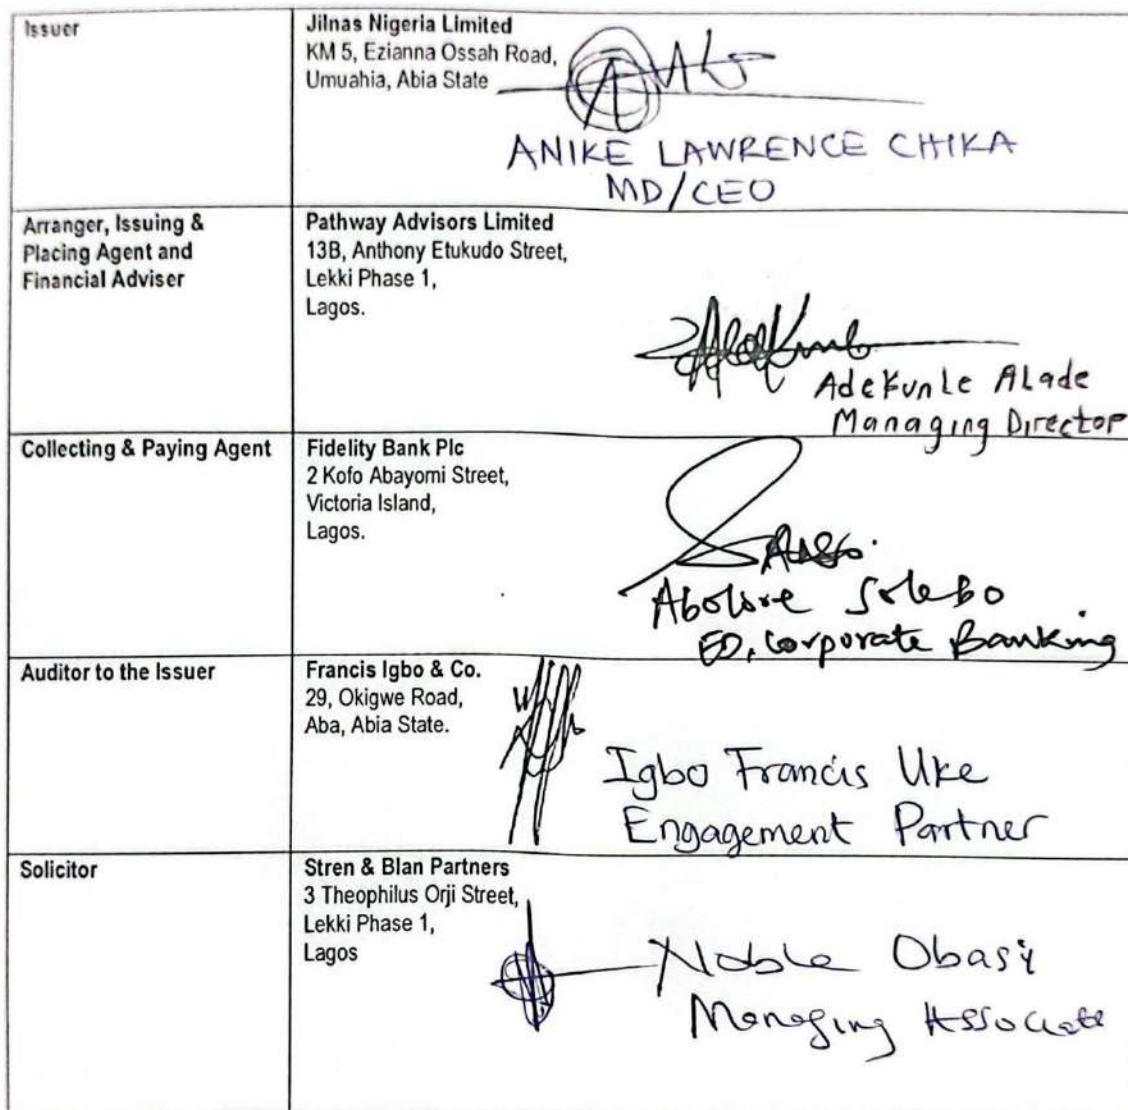 Issuer
Jilnas Nigeria Limited
KM 5, Ezianna Ossah Road,
Umuahia, Abia State
ANIKE LAWRENCE CHIKA
MD/CEO
Arranger, Issuing &
Placing Agent and
Financial Adviser
Pathway Advisors Limited
13B, Anthony Etukudo Street,
Lekki Phase 1,
Lagos.
Adekunle Alade
Managing Director
Collecting & Paying Agent
Fidelity Bank Plc
2 Kofo Abayomi Street,
Victoria Island,
Lagos.
Abolore Solebo
ED, Corporate Banking
Auditor to the Issuer
Francis Igbo & Co.
29, Okigwe Road,
Aba, Abia State.
Igbo Francis Uke
Engagement Partner
Solicitor
Stren & Blan Partners
3 Theophilus Orji Street,
Lekki Phase 1,
Lagos
Noble Obasi
Managing Associate